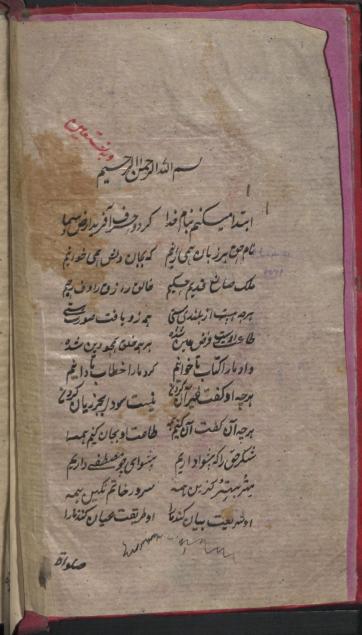 بسم الله الرحمن الرحیم
ابتدا میکنم بنام خدا کز دو حرف آفرید ارض و سما
نام حق بر زبان همی رانیم که بجان و دلش همی خوانیم
ملک صانع قدیم حکیم خالق رازق رؤف رحیم
هر چه هست از بلندی و پستی همه زو یافت صورت هستی
طاعت اوست فرض عین شده بر همه خلق همچو دین شده
داد ما را کتاب تا خوانیم کرد ما را خطاب تا دانیم
هر چه او گفت غیر آن نکنیم نیست سود ار بجز زیان نکنیم
هر چه آن گفت آن کنیم همه طاعت او بجان کنیم همه
شکر حق را که پیشوا داریم پیشوای چو مصطفی داریم
مهتر و بهتر گزین همه سرور خاتم نگین همه
او شریعت بیان کند ما را او طریقت عیان کند ما را
صلوات